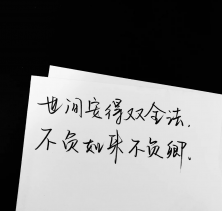 世间安得双全法.
不负如来不负卿.